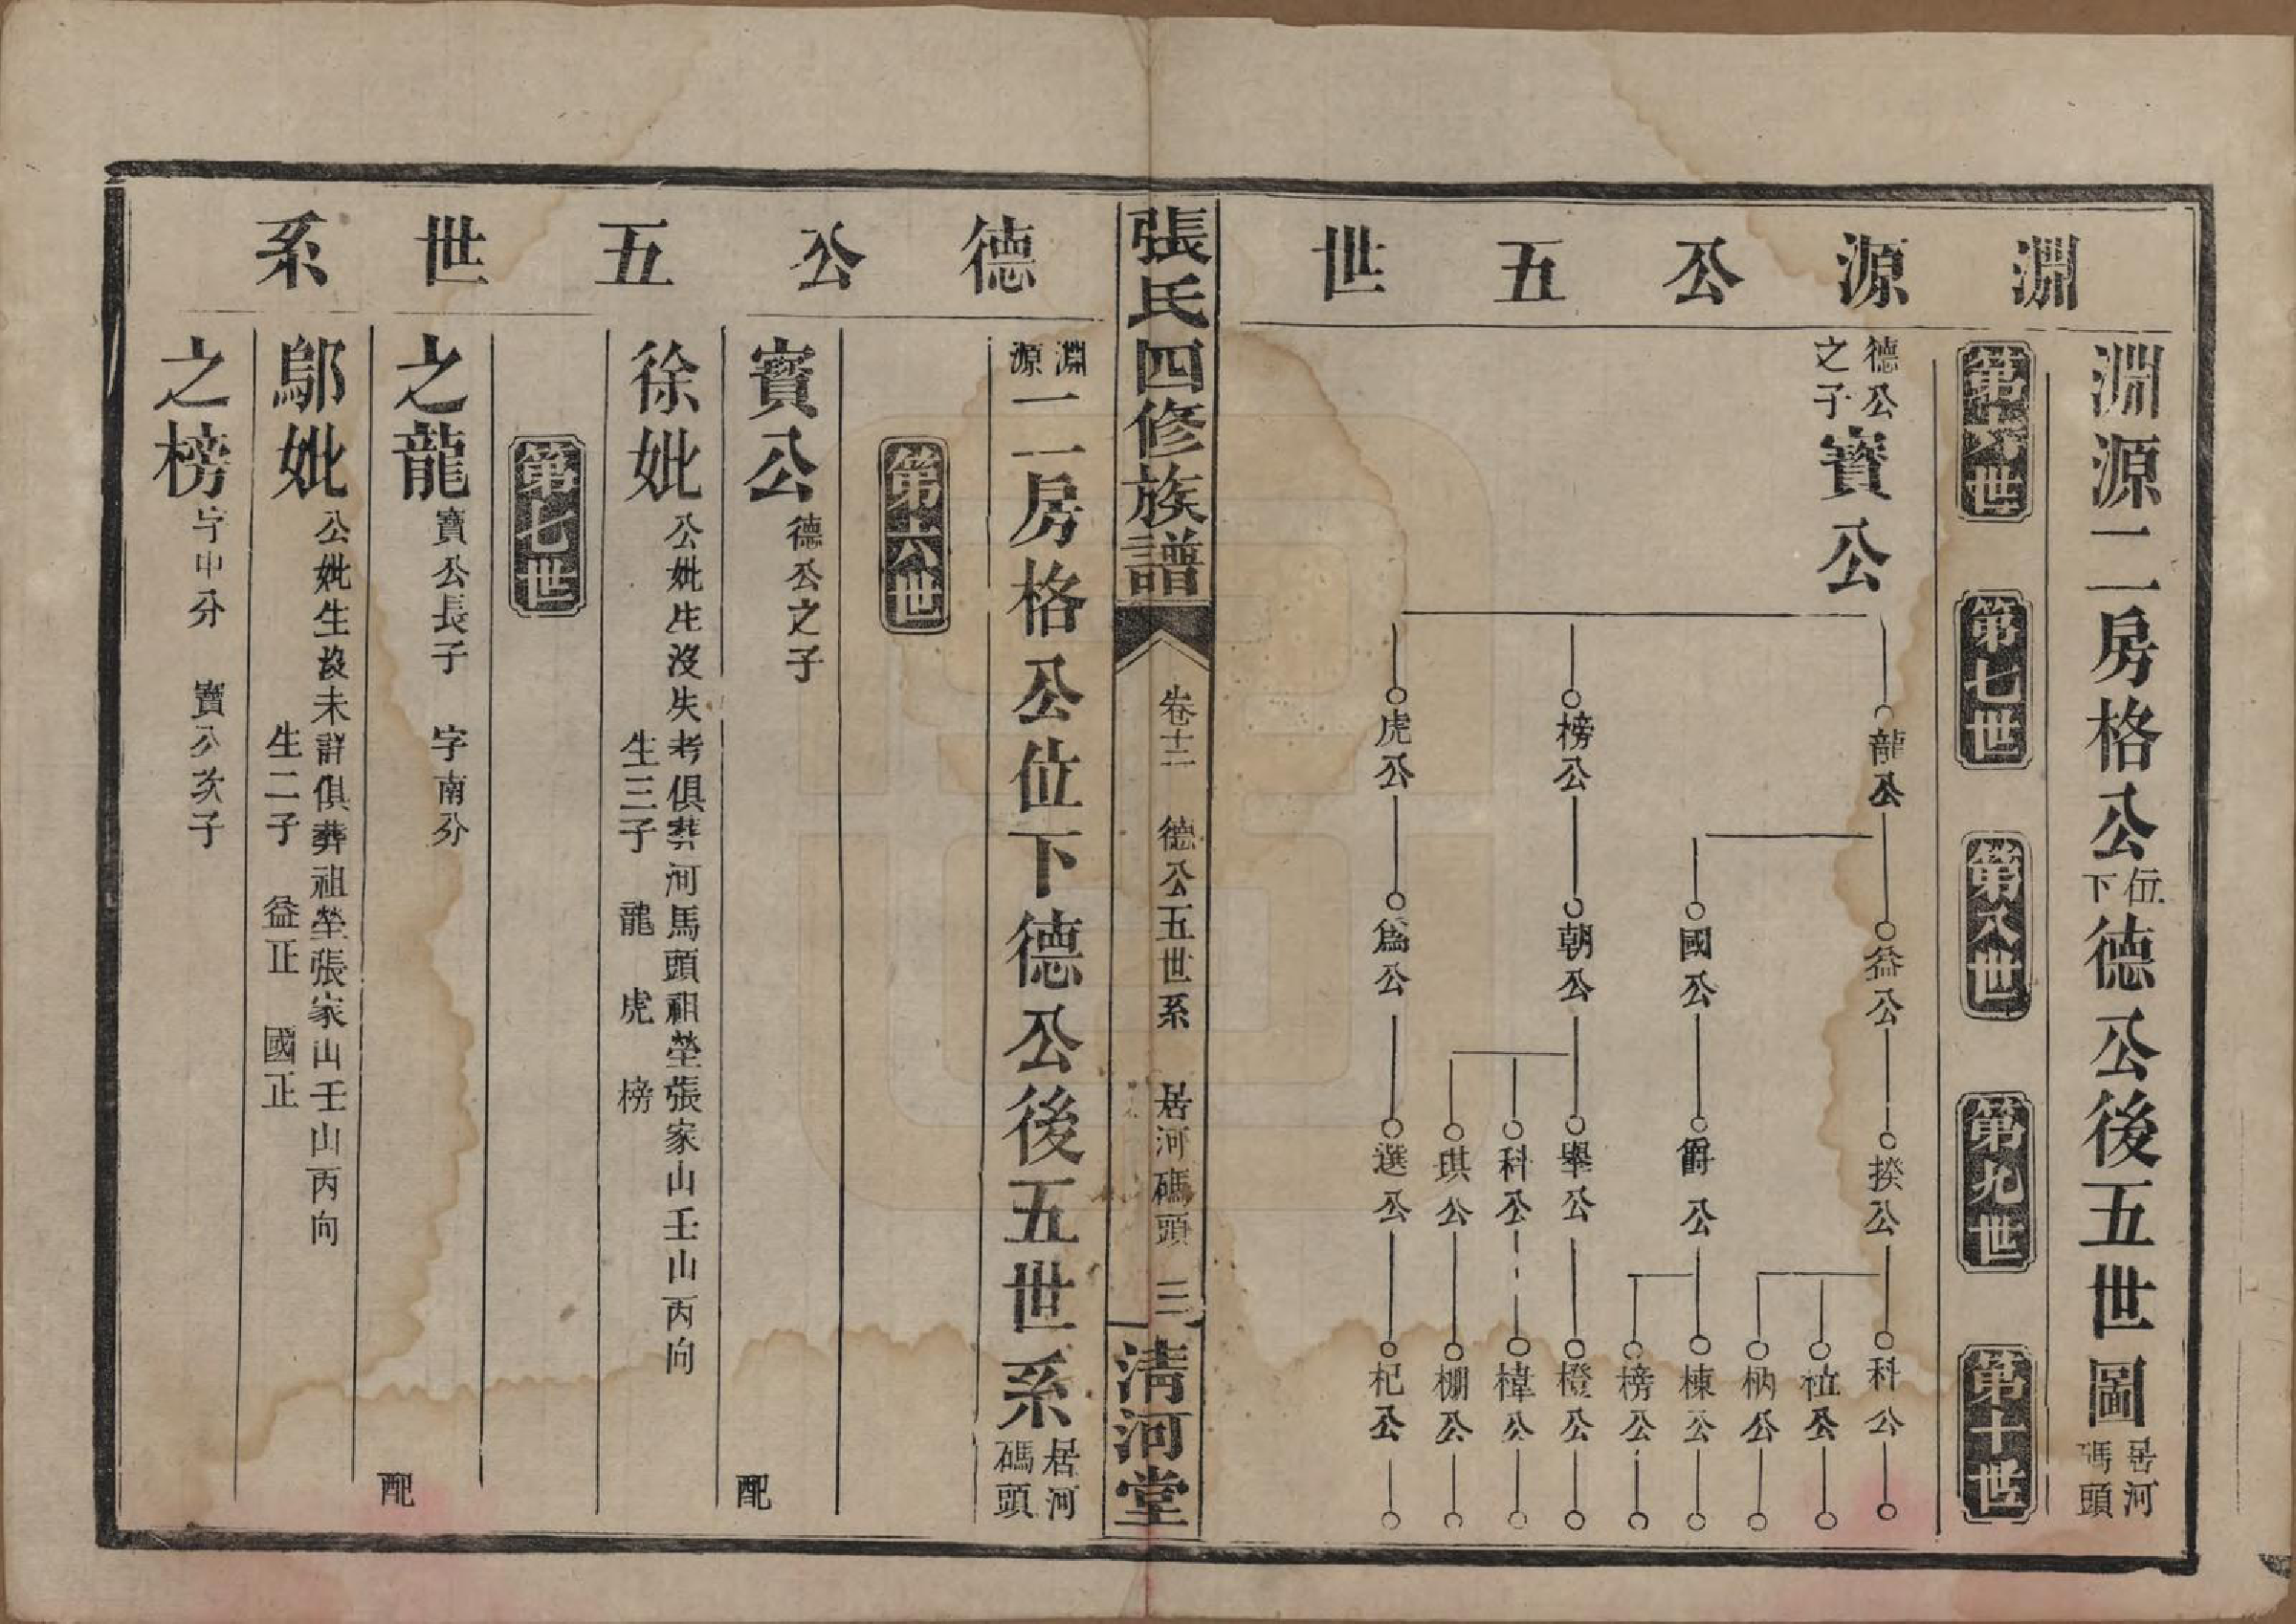 淵源公五世
淵源二房格公位下德公後五世圖 居河碼頭
第六世
第七世
第八世
第九世
第十世
德公之子 寳公
龍公 益公 揆公 科公
柆公
柄公
國公 爵公 棟公
榜公
榜公 朝公 舉公 橙公
科公 樟公
琪公 棚公
虎公 為公 選公 杞公
張氏四修族譜 卷十二 德公五世系 居河碼頭 三 淸河堂
德公五世系
淵源二房格公位下德公後五世系 居河碼頭
第六世
寳公 德公之子 配
徐妣 公妣生沒失考俱葬河馬頭祖塋張家山壬山丙向
生三子 龍 虎 榜
第七世
之龍 寳公長子 字南分 配
鄔妣 公妣生沒未詳俱葬祖塋張家山壬山丙向
生二子 益正 國正
之榜 字中分 寳公次子